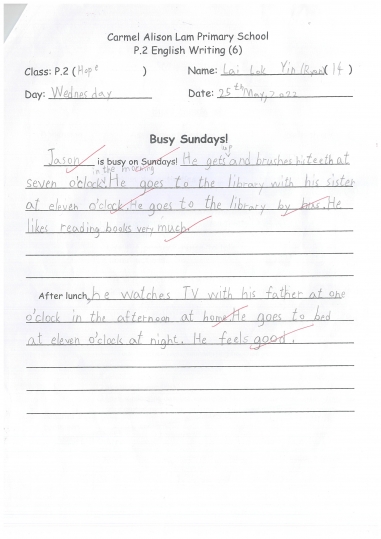 Carmel Alison Lam Primary School
P.2 English Writing (6)
Class: P.2 ( Hope ) Name: Lai Lok Yin (Ryan) ( 14 )
Day: Wednesday Date: 25th May, 2022
Busy Sundays!
Jason is busy on Sundays! He gets up and brushes histeeth at
seven o'clock in the morning. He goes to the library with his sister
at eleven o'clock. He goes to the library by bus. He
likes reading books very much.
After lunch, he watches TV with his father at one
o'clock in the afternoon at home. He goes to bed
at eleven o'clock at night. He feels good.